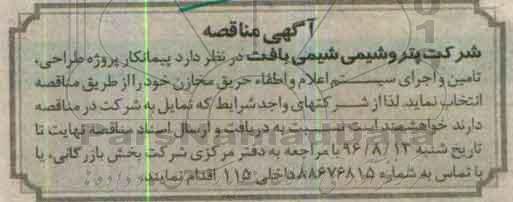 آگهی مناقصه
شرکت پتروشیمی شیمی بافت در نظر دارد پیمانکار پروژه طراحی،
تامین و اجرای سیستم اعلام و اطفاء حریق مخازن خود را از طریق مناقصه
انتخاب نماید. لذا از شرکتهای واجد شرایط که تمایل به شرکت در مناقصه
دارند خواهشمند است نسبت به دریافت و ارسال اسناد مناقصه نهایت تا
تاریخ شنبه ۹۶/۸/۱۳ با مراجعه به دفتر مرکزی شرکت بخش بازرگانی، یا
با تماس به شماره ۸۸۶۷۶۸۱۵ داخلی ۱۱۵ اقدام نمایند.